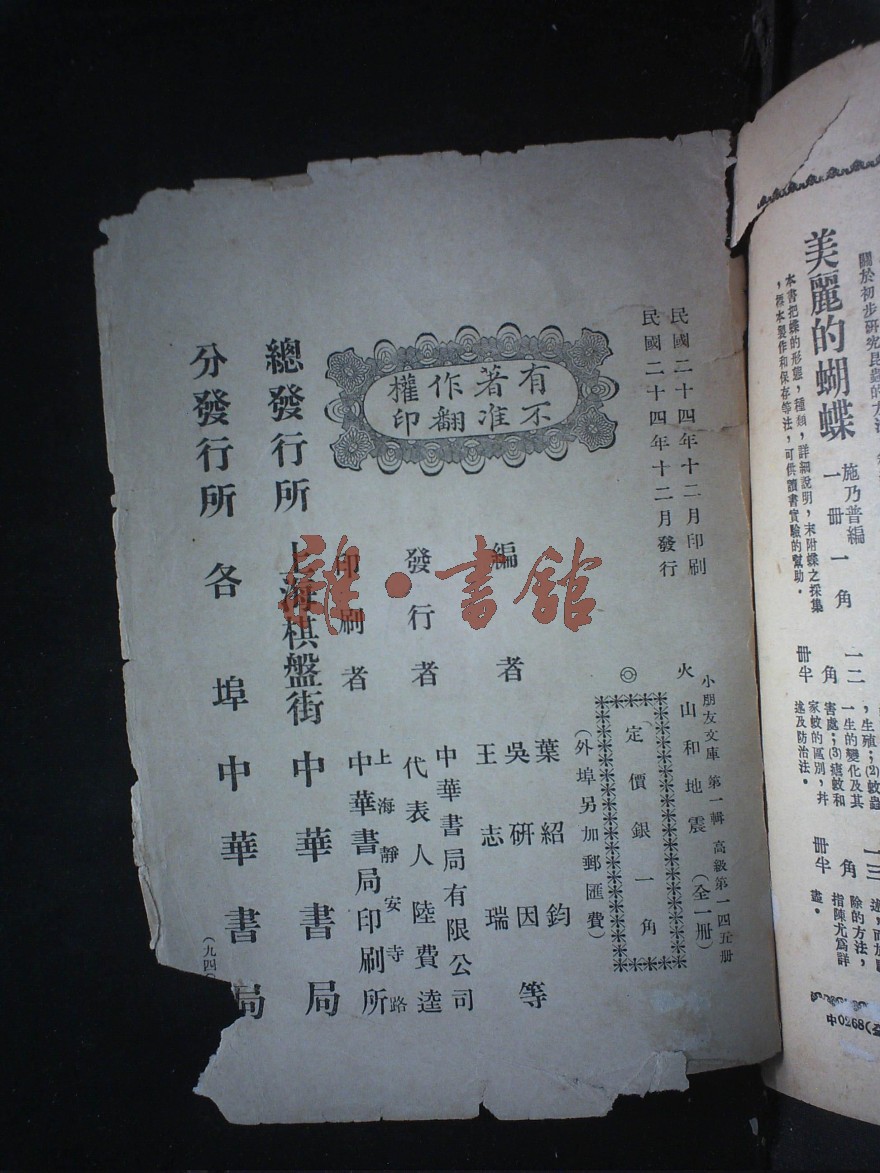 美麗的蝴蝶
施乃普編
一冊一角
本書把蝶的形態，種類，詳細說明，末附蝶之採集
，標本製作和保存等法，可供讀書實驗的幫助。
關於初步研究昆蟲的方法
一二
角
冊半
，生殖；(2)蚊蟲
一生的變化及其
害處；(3)瘧蚊和
家蚊的區別，幷
述及防治法。
一三
角
冊半
除的方法，
指陳尤爲詳
盡。
中0268
民國二十四年十二月印刷
民國二十四年十二月發行
有著作權
不准翻印
小朋友文庫 第一輯 高級第一四五册
火山和地震（全一冊）
◎
定價銀一角
（外埠另加郵匯費）
編者
葉紹鈞
吳研因等
王志瑞
發行者
中華書局有限公司
代表人陸費逵
印刷者
上海靜安寺路
中華書局印刷所
總發行所 上海棋盤街 中華書局
分發行所 各埠中華書局
（九四
雜·書館